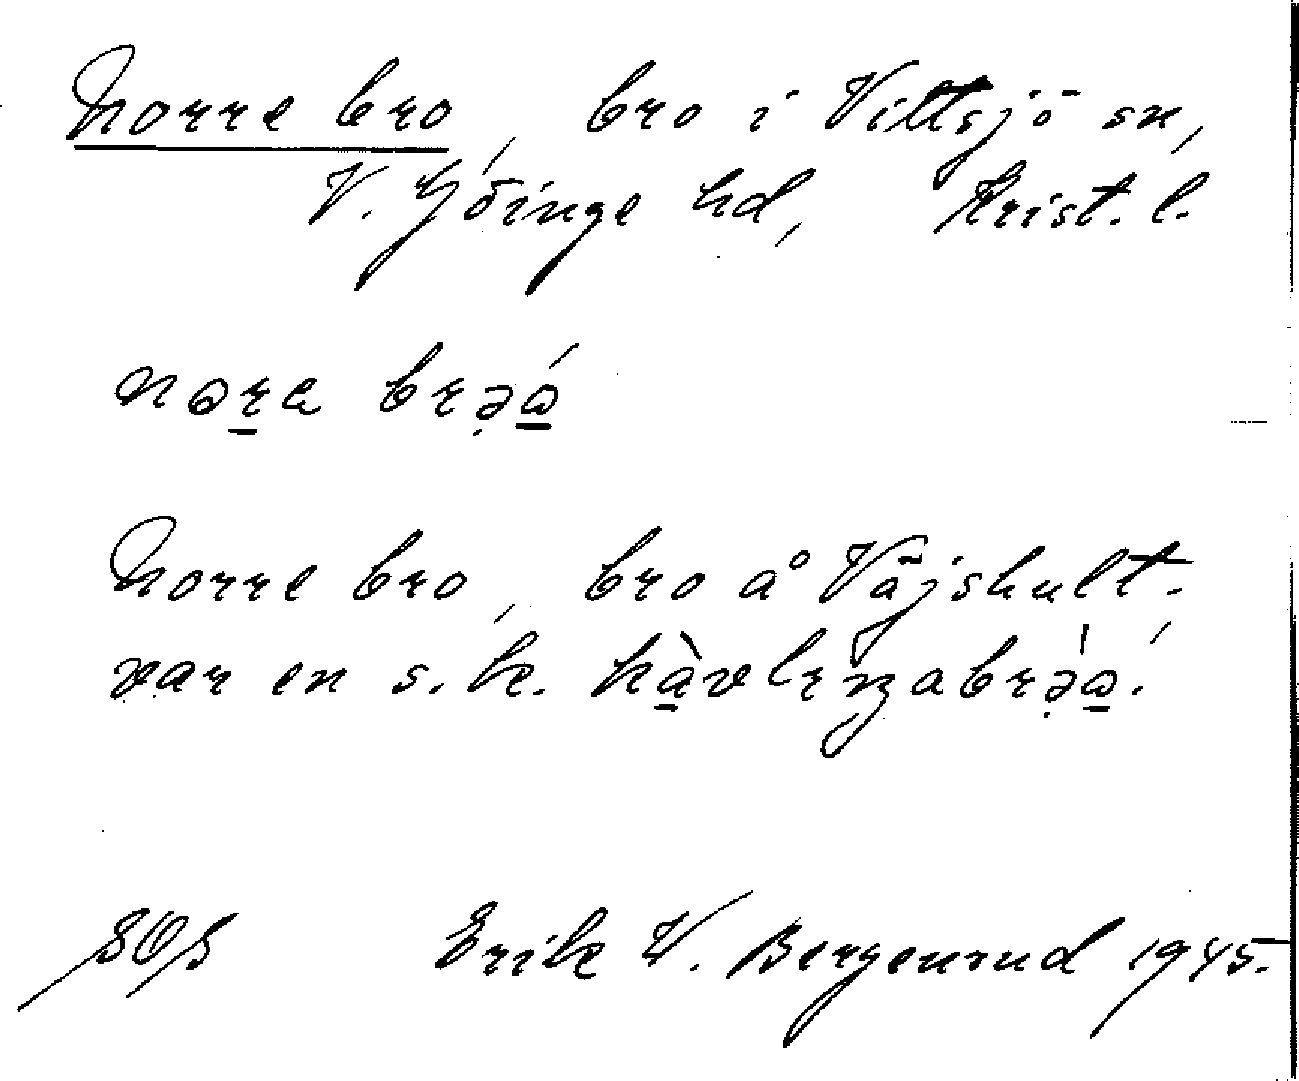 Norre bro, bro i Vittsjö sn,
V. Göinge hd, Krist. l.
nora brəá
Norre bro, bro å Väjshult.
var en s.k. kàvlıŋabrə̀a.
SOS Erik W. Bergenrud 1945.